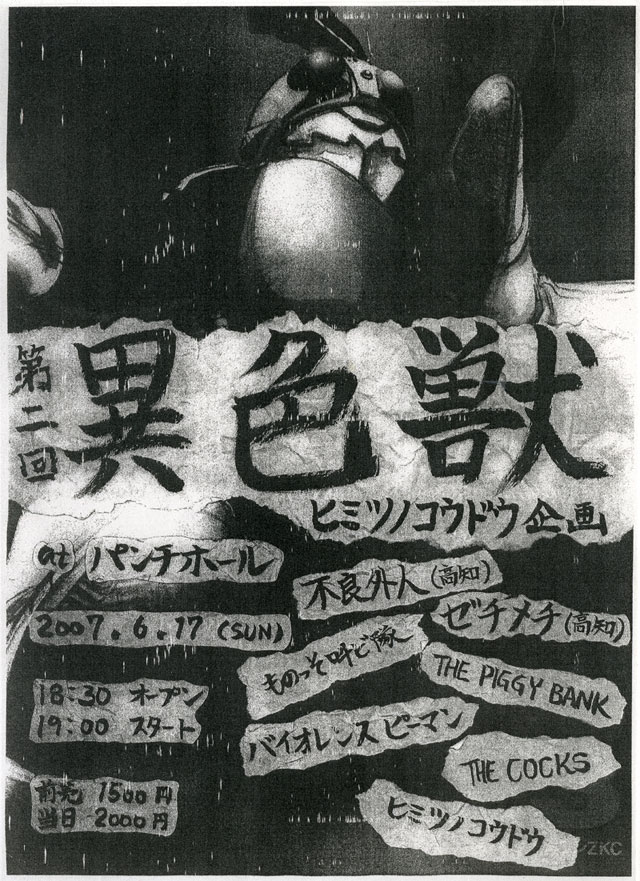 第二回
異色獣
ヒミツノコウドウ企画
at パンチホール
2007.6.17 (SUN)
18:30 オープン
19:00 スタート
前売 1500円
当日 2000円
不良外人(高知)
ゼチメチ(高知)
ものっそ叫び隊
THE PIGGY BANK
バイオレンスピーマン
THE COCKS
ヒミツノコウドウ